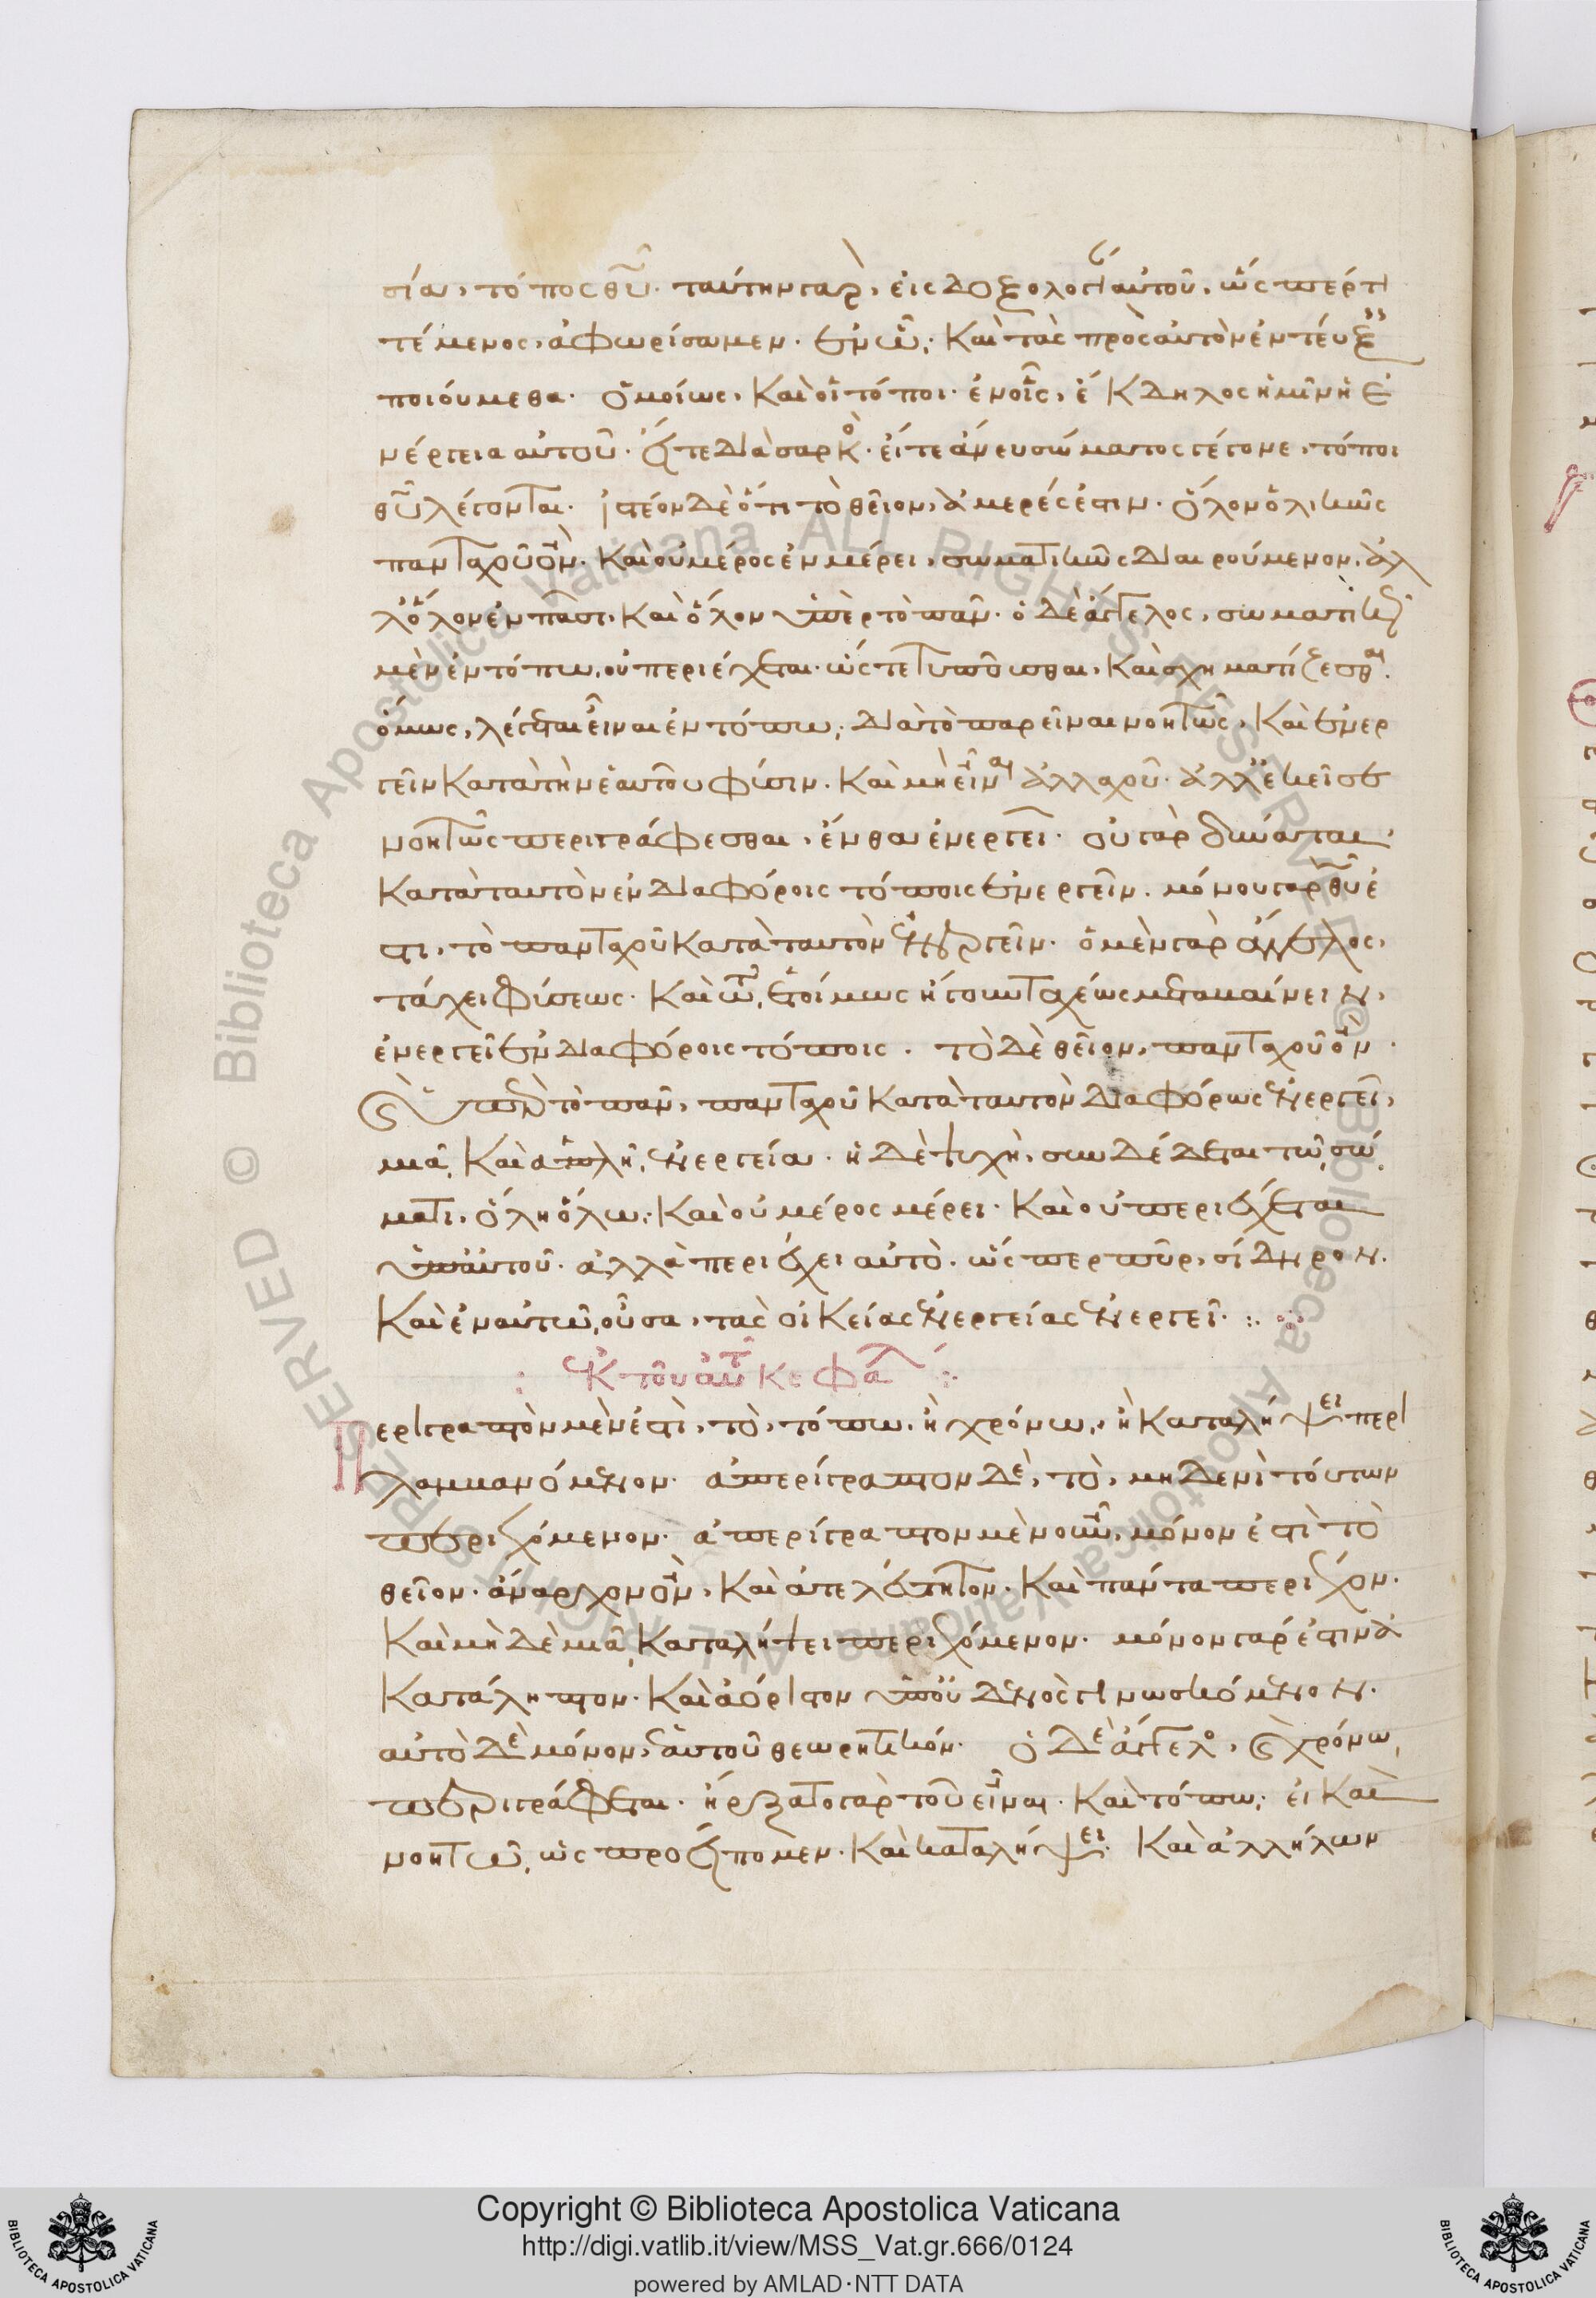 σία, τόπος θυ. ταύτην γὰρ, εἰς δοξολογί αὐτοῦ, ὥς περ τι
τέμενος, ἀφωρίσαμεν. ἐν ὧ, καὶ τὰς πρὸς αὐτὸν ἐντεύξ
ποιούμεθα. ὁμοίως, καὶ οἱ τόποι. ἐν οἷς, ἔκδηλος ἡμῖν ἡ ἐ
νέργεια αὐτοῦ. εἴτε διὰ σαρκὸ. εἴτε ἄνευ σώματος γέγονε, τόποι
θυ λέγονται. ἰστέον δὲ ὅτι τὸ θεῖον, ἀμερές ἐστιν. ὅλον ὁλικῶς
πανταχοῦ ὂν. καὶ οὐ μέρος ἐν μέρει, σωματικῶς διαιρούμενον. ἀλ
λ' ὅλον ἐν πᾶσι, καὶ ὅλον ὑπὲρ τὸ πᾶν. ὁ δὲ ἄγγελος, σωματικῶς
μὲν ἐν τόπω, οὐ περιέχεται. ὥς τε τυποῦσθαι, καὶ σχηματίζεσθαι.
ὅμως, λέγεται εἶναι ἐν τόπω, διὰ τὸ παρεῖναι νοητῶς, καὶ ἐνερ
γεῖν κατὰ τὴν ἑαυτοῦ φύσιν. καὶ μὴ εἶναι ἀλλαχοῦ. ἀλλ' ἐκεῖσε
νοητῶς περιγράφεσθαι, ἔνθα ἐνεργεῖ. οὐ γὰρ δύναται
κατὰ ταυτὸν ἐν διαφόροις τόποις ἐνεργεῖν. μόνου γὰρ θυ ἐ
στι, τὸ πανταχοῦ κατὰ ταυτὸν ἐνεργεῖν. ὁ μὲν γὰρ ἄγγελος,
τάχει φύσεως. καὶ τῶ, ἑτοίμως ἤγουν ταχέως μεταβαίνειν,
ἐνεργεῖ ἐν διαφόροις τόποις. τὸ δὲ θεῖον, πανταχοῦ ὂν.
καὶ ὑπὲρ τὸ πᾶν, πανταχοῦ κατὰ ταυτὸν διαφόρως ἐνεργεῖ,
μιᾶ, καὶ ἁπλῆ, ἐνεργεία. ἡ δὲ ψυχὴ, συνδέδεται τῶ, σώ
ματι, ὅλη ὅλω, καὶ οὐ μέρος μέρει. καὶ οὐ περιέχεται
ὑπ' αὐτοῦ. ἀλλὰ περιέχει αὐτὸ. ὥς περ πῦρ, σίδηρον.
καὶ ἐν αὐτῶ, οὖσα, τὰς οἰκείας ἐνεργείας ἐνεργεῖ. :.
ἐκ τοῦ αὐτ κεφα :
Περιγραπτὸν μὲν ἐστὶ, τὸ, τόπω, ἢ χρόνω, ἢ καταλήψει περι
λαμβανόμενον. ἀπερίγραπτον δὲ, τὸ, μηδενὶ τούτων
περιεχόμενον. ἀπερίγραπτον μὲν οὖν, μόνον ἐστὶ τὸ
θεῖον. ἄναρχον ὂν, καὶ ἀτελεύτητον. καὶ πάντα περιέχον.
καὶ μηδὲ μιᾶ, καταλήψει περιεχόμενον. μόνον γάρ ἐστιν ἀ
κατάληπτον. καὶ ἀόριστον ὑπ' οὐδενὸς γινωσκόμενον.
αὐτὸ δὲ μόνον, ἑαυτοῦ θεωρητικόν. ὁ δὲ ἄγγελο, καὶ χρόνω,
περιγράφεται. ἤρξατο γὰρ τοῦ εἶναι. καὶ τόπω, εἰ καὶ
νοητῶ, ὡς προείπομεν. καὶ καταλήψει. καὶ ἀλλήλων
Copyright © Biblioteca Apostolica Vaticana
http://digi.vatlib.it/view/MSS_Vat.gr.666/0124
powered by AMLAD·NTT DATA